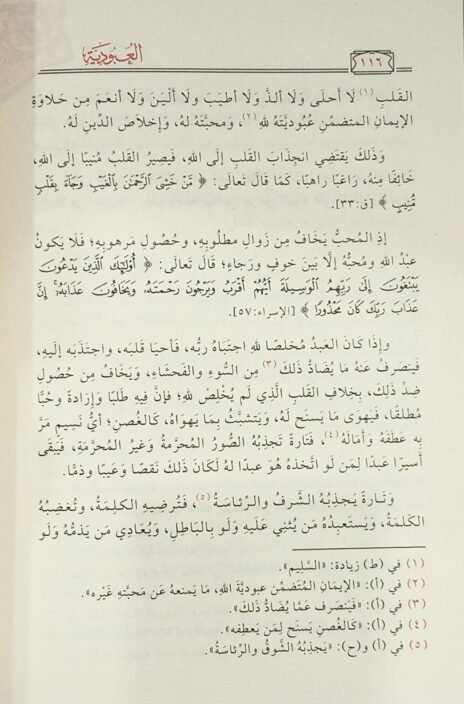 ١١٦
العُبُودِيَّة
القَلبِ (١) لَا أَحلَى وَلَا أَلذَّ وَلَا أَطيَبَ ولَا أَلْيَنَ وَلَا أَنعَمَ مِن حَلَاوَةِ
الإِيمانِ المتضمِّنِ عُبُوديَّتَهُ للهِ (٢)، وَمَحبَّتَهُ لهُ، وَإِخلَاصَ الدِّينِ لَهُ.
وَذَلكَ يَقتَضِي انجِذَابَ القَلبِ إلى اللهِ، فَيَصِيرُ القَلبُ مُنيبًا إلى اللهِ،
خَائِفًا مِنهُ، رَاغبًا راهبًا، كمَا قَالَ تَعالَى: ﴿ مَّنْ خَشِىَ ٱلرَّحْمَٰنَ بِٱلْغَيْبِ وَجَآءَ بِقَلْبٍ
مُّنِيبٍ ﴾ [ق:٣٣].
إِذِ المُحبُّ يَخَافُ مِن زَوالِ مَطلُوبِهِ، وحُصُولِ مَرهوبِهِ؛ فلَا يَكونُ
عبدُ اللهِ ومُحبُّه إلَّا بَينَ خوفٍ ورَجاءٍ؛ قَالَ تَعالَى: ﴿ أُوْلَٰٓئِكَ ٱلَّذِينَ يَدْعُونَ
يَبْتَغُونَ إِلَىٰ رَبِّهِمُ ٱلْوَسِيلَةَ أَيُّهُمْ أَقْرَبُ وَيَرْجُونَ رَحْمَتَهُۥ وَيَخَافُونَ عَذَابَهُۥٓ ۚ إِنَّ
عَذَابَ رَبِّكَ كَانَ مَحْذُورًا ﴾ [الإسراء:٥٧].
وإِذَا كَانَ العَبدُ مُخلصًا للهِ اجتَبَاهُ ربُّه، فَأحيَا قلبَه، واجتَذَبَه إليهِ،
فيَنصَرفُ عَنهُ مَا يُضَادُّ ذَلكَ (٣) مِن السُّوءِ والفَحشَاءِ، وَيَخَافُ مِن حُصُولِ
ضِدِّ ذَلكَ، بِخِلَافِ القَلبِ الَّذي لَم يُخْلِصْ للهِ؛ فإِنَّ فيهِ طَلبًا وَإِرادَةً وحُبًّا
مُطلقًا، فَيَهوَى مَا يَسنَح لَهُ، وَيَتشبَّثُ بِمَا يَهوَاهُ، كالغُصنِ؛ أيُّ نَسيمٍ مَرَّ
بِه عَطَفَهُ وَأَمَالَهُ (٤)، فَتَارةً تَجذِبُهُ الصُّوَرُ المُحرَّمةُ وَغيرُ المُحرَّمةِ، فَيَبقَى
أَسيرًا عَبدًا لِمَن لَو اتَّخذَهُ هوَ عَبدًا لهُ لَكَانَ ذَلكَ نَقصًا وَعَيبًا وذمًّا.
وَتَارةً يَجذِبُهُ الشَّرفُ والرِّئاسَةُ (٥)، فَتُرضِيهِ الكلِمَةُ، وتُغضِبُهُ
الكَلمَةُ، وَيَستَعبِدُهُ مَن يُثنِي عَلَيهِ وَلَو بِالبَاطِلِ، وَيُعَادِي مَن يَذمُّهُ وَلَو
(١) في (ط) زيادة: «السَّلِيم».
(٢) في (أ): «الإيمانِ المُتضمِّن عبوديَّةَ اللهِ، مَا يَمنعهُ عَن مَحبَّتِهِ غَيْرَه».
(٣) في (أ): «فيَنصَرف عَمَّا يُضَادُّ ذلكَ».
(٤) في (أ): «كَالغُصنِ يَسنَح لِمَن يَعطِفه».
(٥) في (أ) و(ح): «يَجذِبُهُ الشَّوقُ والرِّئاسَةُ».